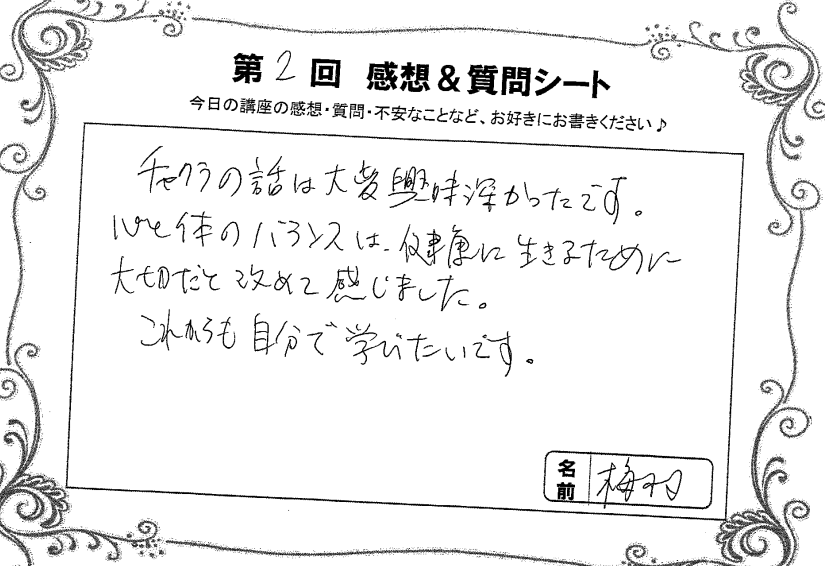 第2回 感想&質問シート
今日の講座の感想・質問・不安なことなど、お好きにお書きください♪
チャクラの話は大変興味深かったです。
心と体のバランスは、健康に生きるために
大切だと改めて感じました。
これからも自分で学びたいです。
名前 梅村